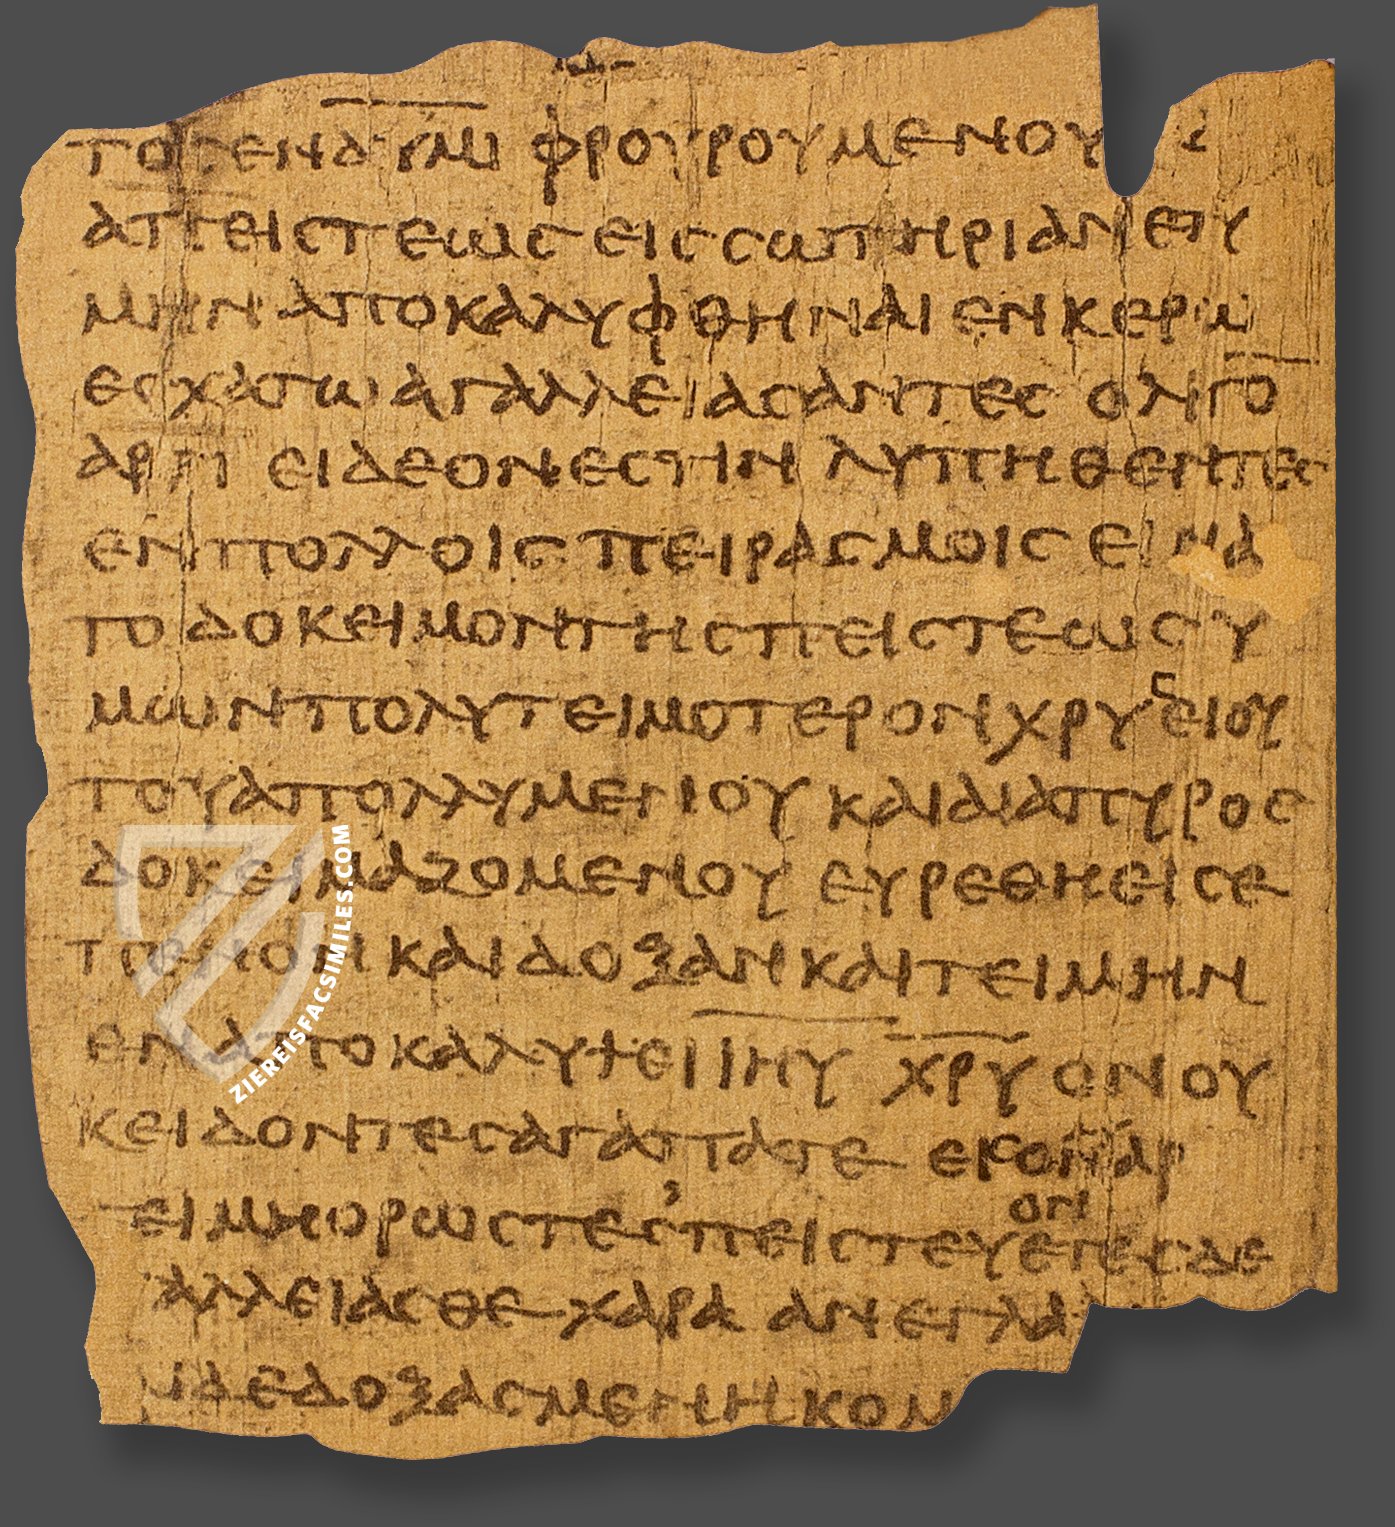 δ
τος εν δυμι φρουρουμενους
απιειστεως εις σωτηριαν ετυ
μην αποκαλυφθηναι εν κερω
εσχατω αγαλλειασαντες ολιγο̅
αρτι ει δεον εστιν λυπηθεντες
εν πολλοις πειρασμοις εινα
το δοκειμον της πειστεως υ
μων πολυτειμοτερον χρυσειου
του απολλυμενου και δια πυρος
δοκειμαζομενου ευρεθηει σε
τπενον και δοξαν και τειμην
εν αποκαλυψει ιηυ χρυ ον ου
κ ειδοντες αγαπατε εις ον αρ
τει μη ορωστες πειστευετες δε
ον
αλλειασθε χαρα ανεγλα
δεδοξασμενη κομ
ZIEREISFACSIMILES.COM